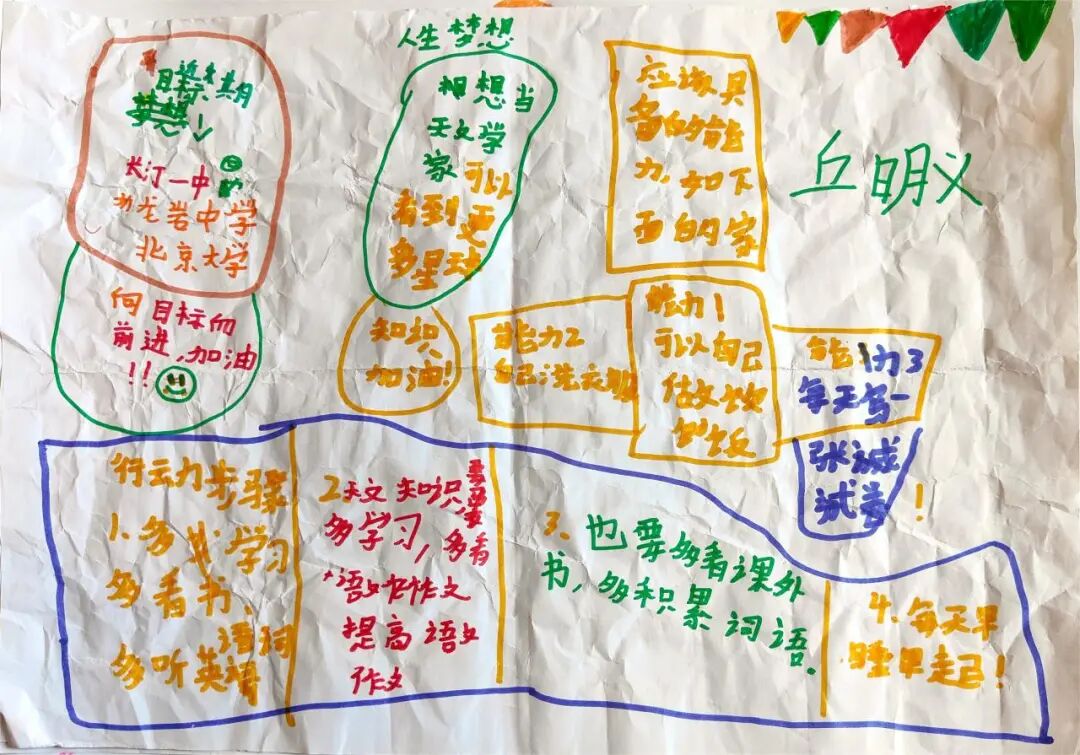 近期
目标:
梦想!
长汀一中
龙岩中学
北京大学
向目标向
前进,加油
!!
人生梦想
想当
天文学
家可以
看到更
多星球
知识、
加油!
应该具
备的能
力。如下
面的家
能力1
可以自己
做饭
能力2
自己洗衣服
能力3
每天写一
张诚
试卷!
丘明义
行动力步骤
1.多学习
多看书、
多听英语
语词
2天文知识要
多学习,多看
语文作文
提高语文
作文
3、也要多看课外
书,多积累词语。
4.每天早
睡早起!